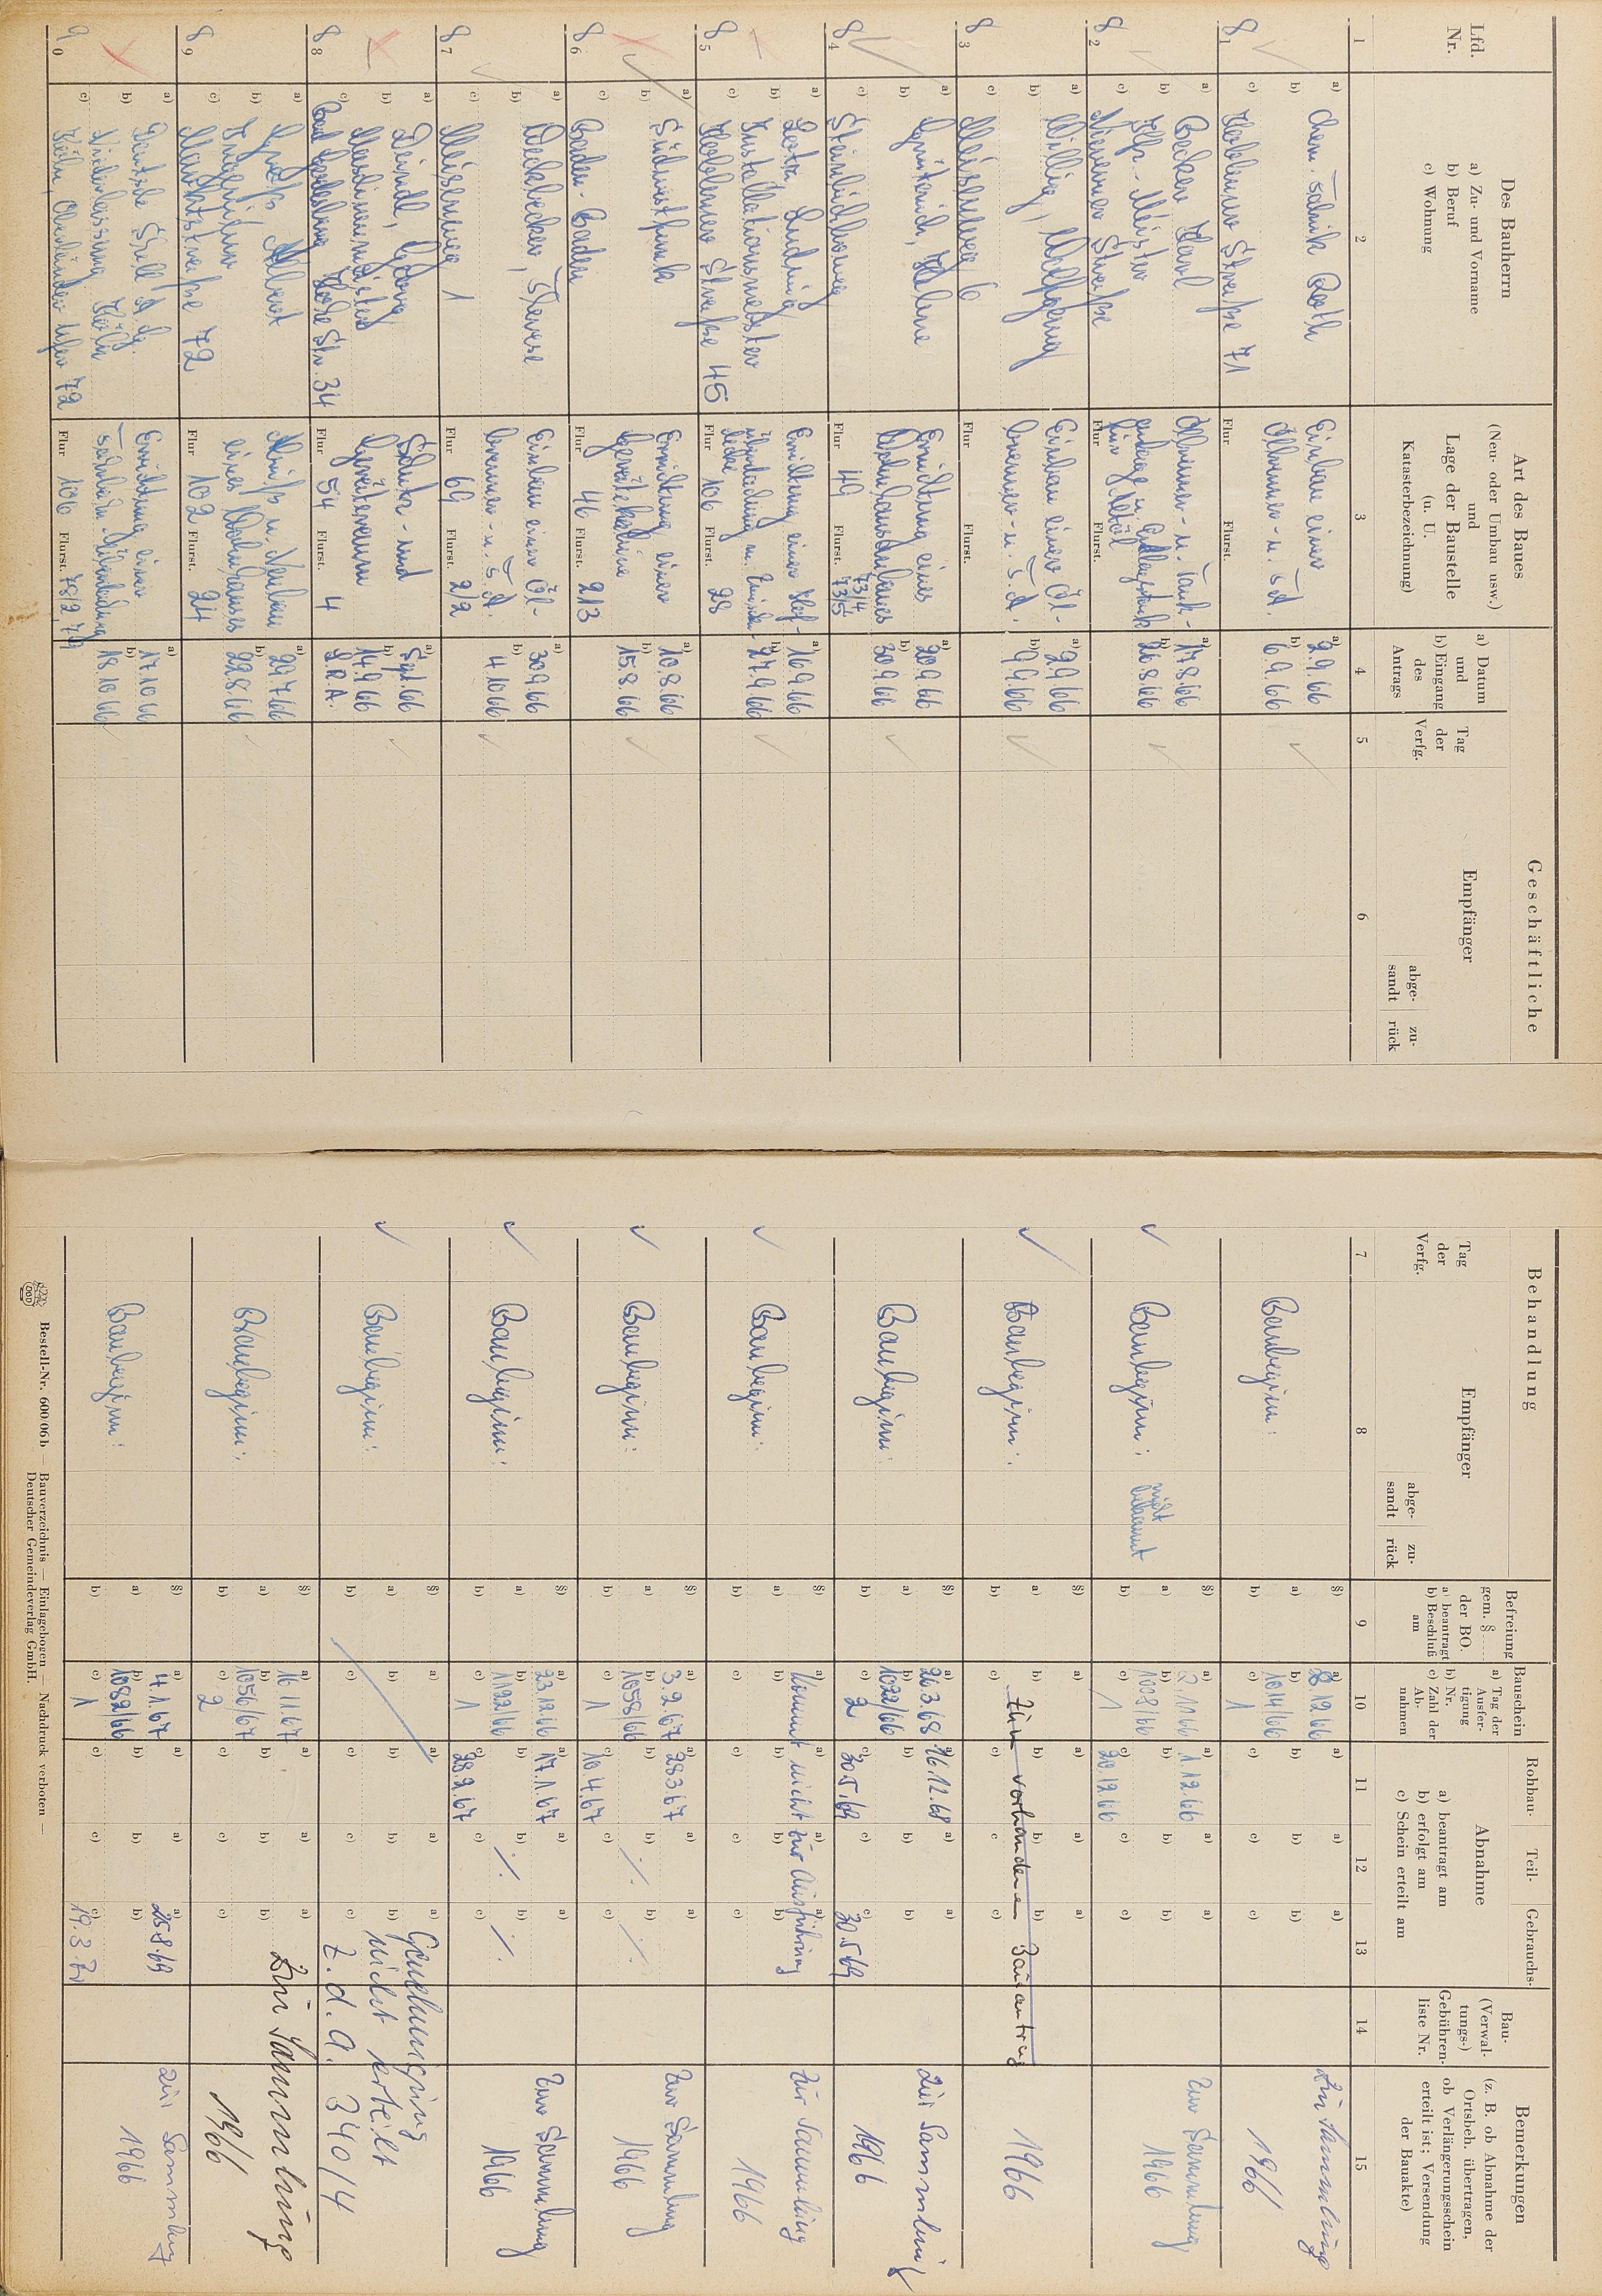 Geschäftliche
Behandlung
Lfd.
Nr.
Des Bauherrn
a) Zu- und Vorname
b) Beruf
c) Wohnung
Art des Baues
(Neu- oder Umbau usw.)
und
Lage der Baustelle
(u. U.
Katasterbezeichnung)
a) Datum
und
b) Eingang
des
Antrags
Tag
der
Verfg.
Empfänger
abge-
sandt
zu-
rück
Tag
der
Verfg.
Empfänger
abge-
sandt
zu-
rück
Befreiung
gem. §
der BO.
a) beantragt
b) Beschluß
am
Bauschein
a) Tag der
Ausfer-
tigung
b) Nr.
c) Zahl der
Ab-
nahmen
Rohbau-
Teil-
Gebrauchs-
Abnahme
a) beantragt am
b) erfolgt am
c) Schein erteilt am
Bau-
(Verwal-
tungs-)
Gebühren-
liste Nr.
Bemerkungen
(z. B. ob Abnahme der
Ortsbeh. übertragen,
ob Verlängerungsschein
erteilt ist; Versendung
der Bauakte)
1 2 3 4 5 6 7 8 9 10 11 12 13 14 15
81
a) Chem. Fabrik Roth
b)
c) Koblenzer Straße 71
Einbau einer
Ölbrenner- u. T.A.
Flur Flurst.
a) 2.9.66
b) 6.9.66
Baubeginn:
a) 8.12.66
b) 1014/66
c) 1
Zur Sammlung
1966
82
a) Becker Karl
b) Kfz.-Meister
c) Mayener Straße
Ölbrenner- u. Tank-
Flur Flurst.
a) 17.8.66
b) 26.8.66
Baubeginn:
nicht
bekannt
a) 2.11.66
b) 1008/66
c) 1
a) 1.12.66
c) 20.12.66
Zur Sammlung
1966
83
a) Willig, Wolfgang
b)
c) Meisenweg 6
Einbau einer Öl-
brenner- u. T.A.
Flur Flurst.
a) 2.9.66
b) 9.9.66
Baubeginn:
Zum vorhandenen Bauantrag
1966
84
a) Grüterich, Helene
b)
c) Steinbüchlweg
Errichtung eines
Wohnhausanbaues
Flur 49 Flurst. 73/4
73/5
a) 20.9.66
b) 30.9.66
Baubeginn:
a) 26.3.68
b) 1022/66
c) 2
a) 16.12.68
c) 30.5.69
c) 30.5.69
Zur Sammlung
1966
85
a) Lotz, Ludwig
b) Installationsmeister
c) Koblenzer Straße 45
Errichtung einer Hof-
Flur 106 Flurst. 28
a) 16.9.66
b) 27.9.66
Baubeginn:
Kommt nicht zur Ausführung
Zur Sammlung
1966
86
a) Südwestfunk
b)
c) Baden-Baden
Errichtung einer
Gerätekabine
Flur 46 Flurst. 213
a) 10.8.66
b) 15.8.66
Baubeginn:
a) 3.2.67
b) 1058/66
c) 1
a) 28.3.67
c) 10.4.67
./.
./.
Zur Sammlung
1966
87
a) Deckbecker, Therese
b)
c) Meisenweg 1
Einbau einer Öl-
brenner- u. T.A.
Flur 69 Flurst. 2/2
a) 30.9.66
b) 4.10.66
Baubeginn:
a) 23.12.66
b) 1122/66
c) 1
a) 17.1.67
c) 28.2.67
./.
./.
Zur Sammlung
1966
88
a) Deindl, Georg
b) Maschinenmeister
c) Bad Godesberg Hohe Str. 34
Schutz- und
Geräteraum
Flur 54 Flurst. 4
a) Sept. 66
b) 14.9.66
S.R.A.
Baubeginn:
Genehmigung
nicht erteilt
z.d.A. 340/4
89
a) Groß, Albert
b) Ingenieur
c) Marktstraße 72
Abriß u. Neubau
eines Wohnhauses
Flur 102 Flurst. 24
a) 29.7.66
b) 22.8.66
Baubeginn:
a) 16.11.67
b) 1056/67
c) 2
Zur Sammlung
1966
90
a) Deutsche Shell A.G.
b) Niederlassung Köln
c) Köln, Oberländer Ufer 72
Errichtung einer
Flur 106 Flurst. 78/2, 79
a) 17.10.66
b) 18.10.66
Baubeginn:
a) 4.1.67
b) 1082/66
c) 1
a) 25.8.69
c) 19.3.70
Zur Sammlung
1966
Bestell-Nr. 600/06 b — Bauverzeichnis — Einlagebogen — Nachdruck verboten —
Deutscher Gemeindeverlag GmbH.